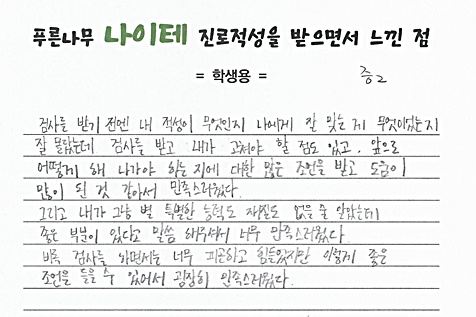 푸른나무 나이테 진로적성을 받으면서 느낀 점
= 학생용 =
중2
검사를 받기 전엔 내 적성이 무엇인지 나에게 잘 맞는 게 무엇이었는지
잘 몰랐는데 검사를 받고 내가 고쳐야 할 점도 있고, 앞으로
어떻게 해 나가야 하는 지에 대한 많은 조언을 받고 도움이
많이 된 것 같아서 만족스러웠다.
그리고 내가 그냥 별 특별한 능력도 재질도 없을 줄 알았는데
좋은 부분이 있다고 말씀 해주셔서 너무 만족스러웠다
비록 검사를 하면서는 너무 피곤하고 힘들었지만 이렇게 좋은
조언을 들을 수 있어서 굉장히 만족스러웠다.